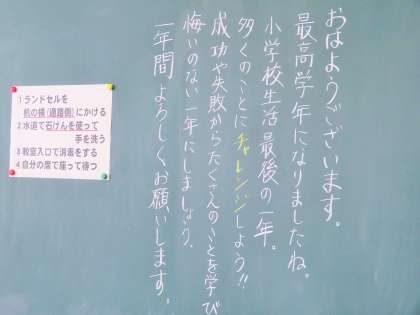 おはようございます。
最高学年になりましたね。
小学校生活最後の一年。
多くのことにチャレンジしよう!!
成功や失敗からたくさんのことを学び
悔いのない一年にしましょう。
一年間よろしくお願いします。
1 ランドセルを
机の横(通路側)にかける
2 水道で石けんを使って
手を洗う
3 教室入口で消毒をする
4 自分の席で座って待つ